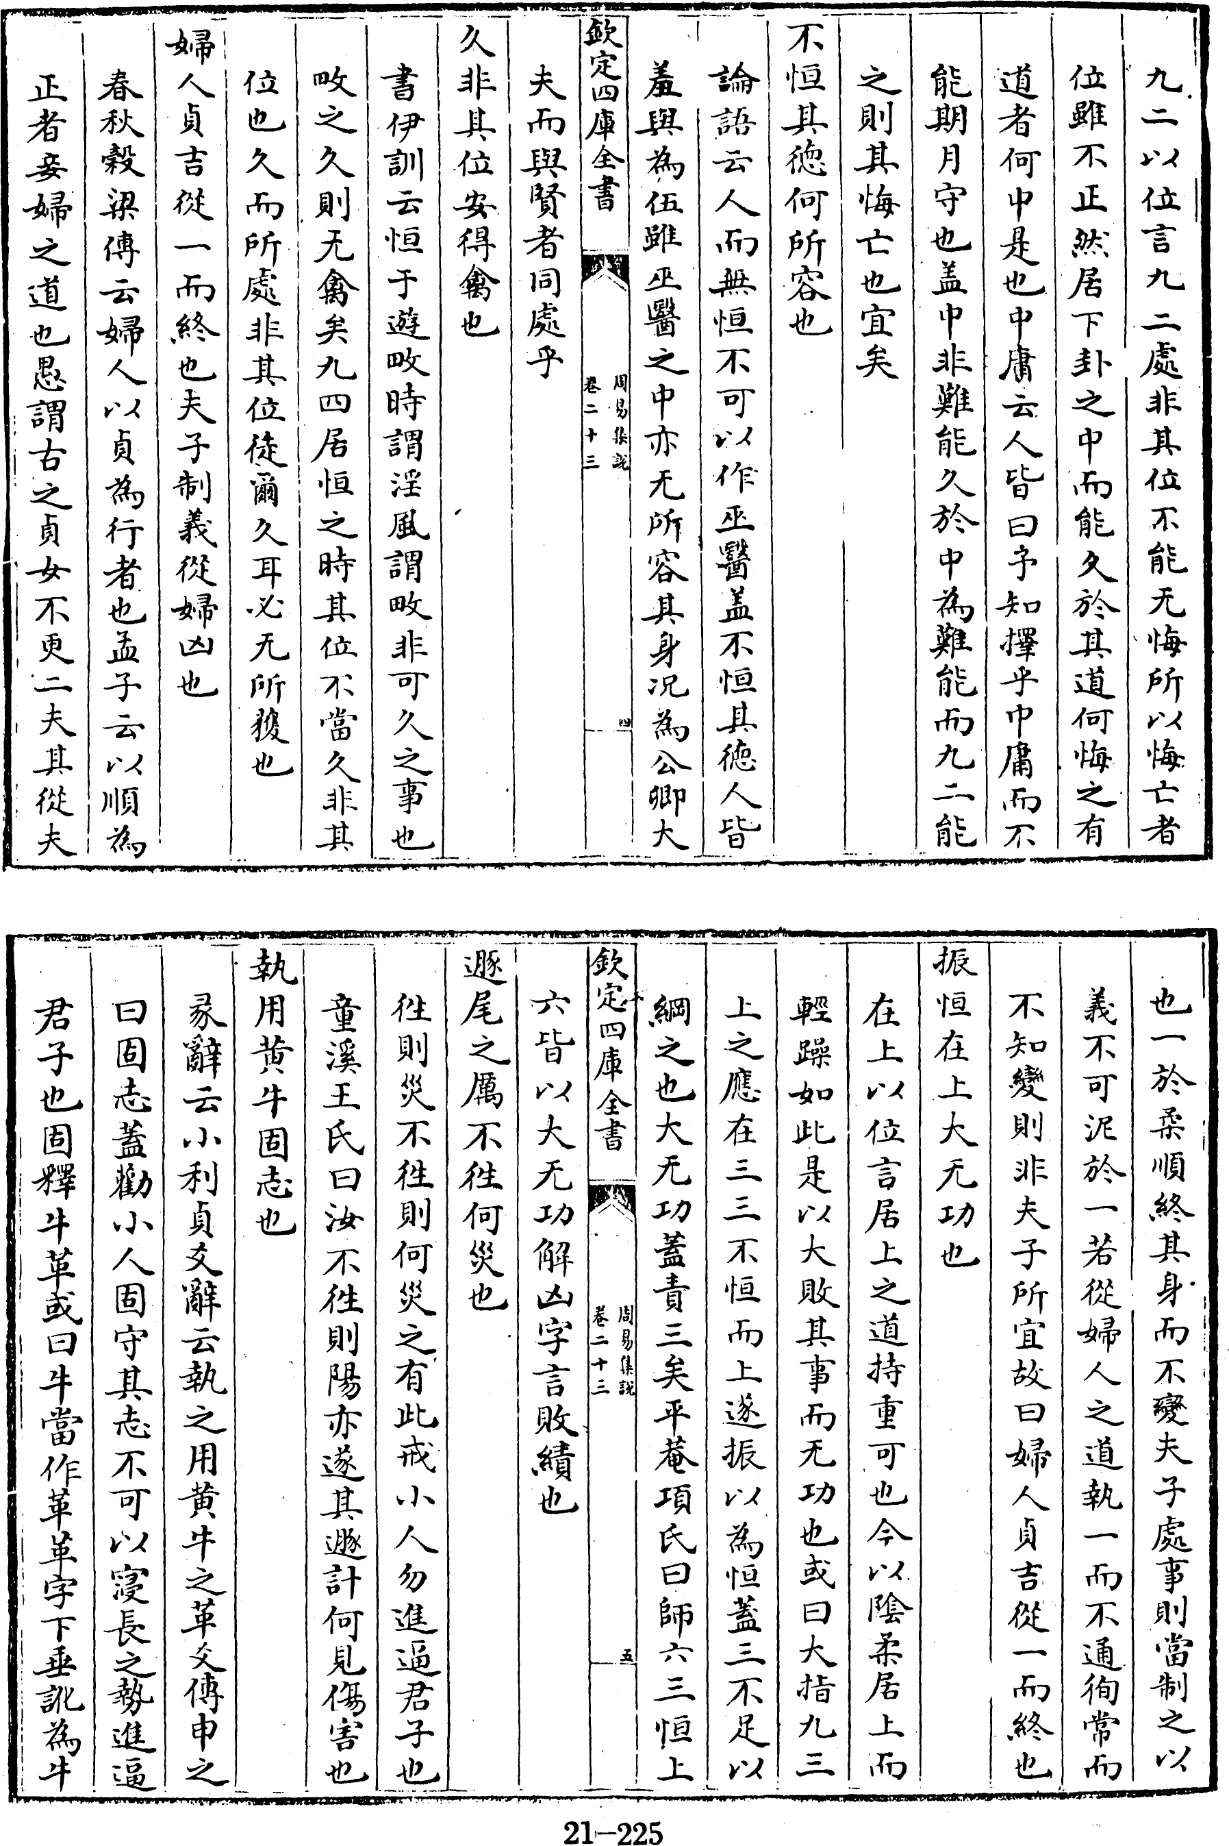 九二以位言九二處非其位不能无悔所以悔亡者
位雖不正然居下卦之中而能久於其道何悔之有
道者何中是也中庸云人皆曰予知擇乎中庸而不
能期月守也盖中非難能久於中為難能而九二能
之則其悔亡也宜矣
不恒其德何所容也
論語云人而無恒不可以作巫醫盖不恒其德人皆
羞與為伍雖巫醫之中亦无所容其身况為公卿大
欽定四庫全書
周易集說
卷二十三
四
夫而與賢者同處乎
久非其位安得禽也
書伊訓云恒于遊畋時謂淫風謂畋非可久之事也
畋之久則无禽矣九四居恒之時其位不當久非其
位也久而所處非其位徒爾久耳必无所獲也
婦人貞吉從一而終也夫子制義從婦凶也
春秋榖梁傳云婦人以貞為行者也孟子云以順為
正者妾婦之道也愚謂古之貞女不更二夫其從夫
也一於柔順終其身而不變夫子處事則當制之以
義不可泥於一若從婦人之道執一而不通徇常而
不知變則非夫子所宜故曰婦人貞吉從一而終也
振恒在上大无功也
在上以位言居上之道持重可也今以陰柔居上而
輕躁如此是以大敗其事而无功也或曰大指九三
上之應在三三不恒而上遂振以為恒蓋三不足以
綱之也大无功蓋責三矣平菴項氏曰師六三恒上
欽定四庫全書
周易集說
卷二十三
五
六皆以大无功解凶字言敗績也
遯尾之厲不徃何災也
徃則災不徃則何災之有此戒小人勿進逼君子也
童溪王氏曰汝不徃則陽亦遂其遯計何見傷害也
執用黄牛固志也
彖辭云小利貞爻辭云執之用黄牛之革爻傳申之
曰固志蓋勸小人固守其志不可以寖長之勢進逼
君子也固釋牛革或曰牛當作革革字下垂訛為牛
21-225